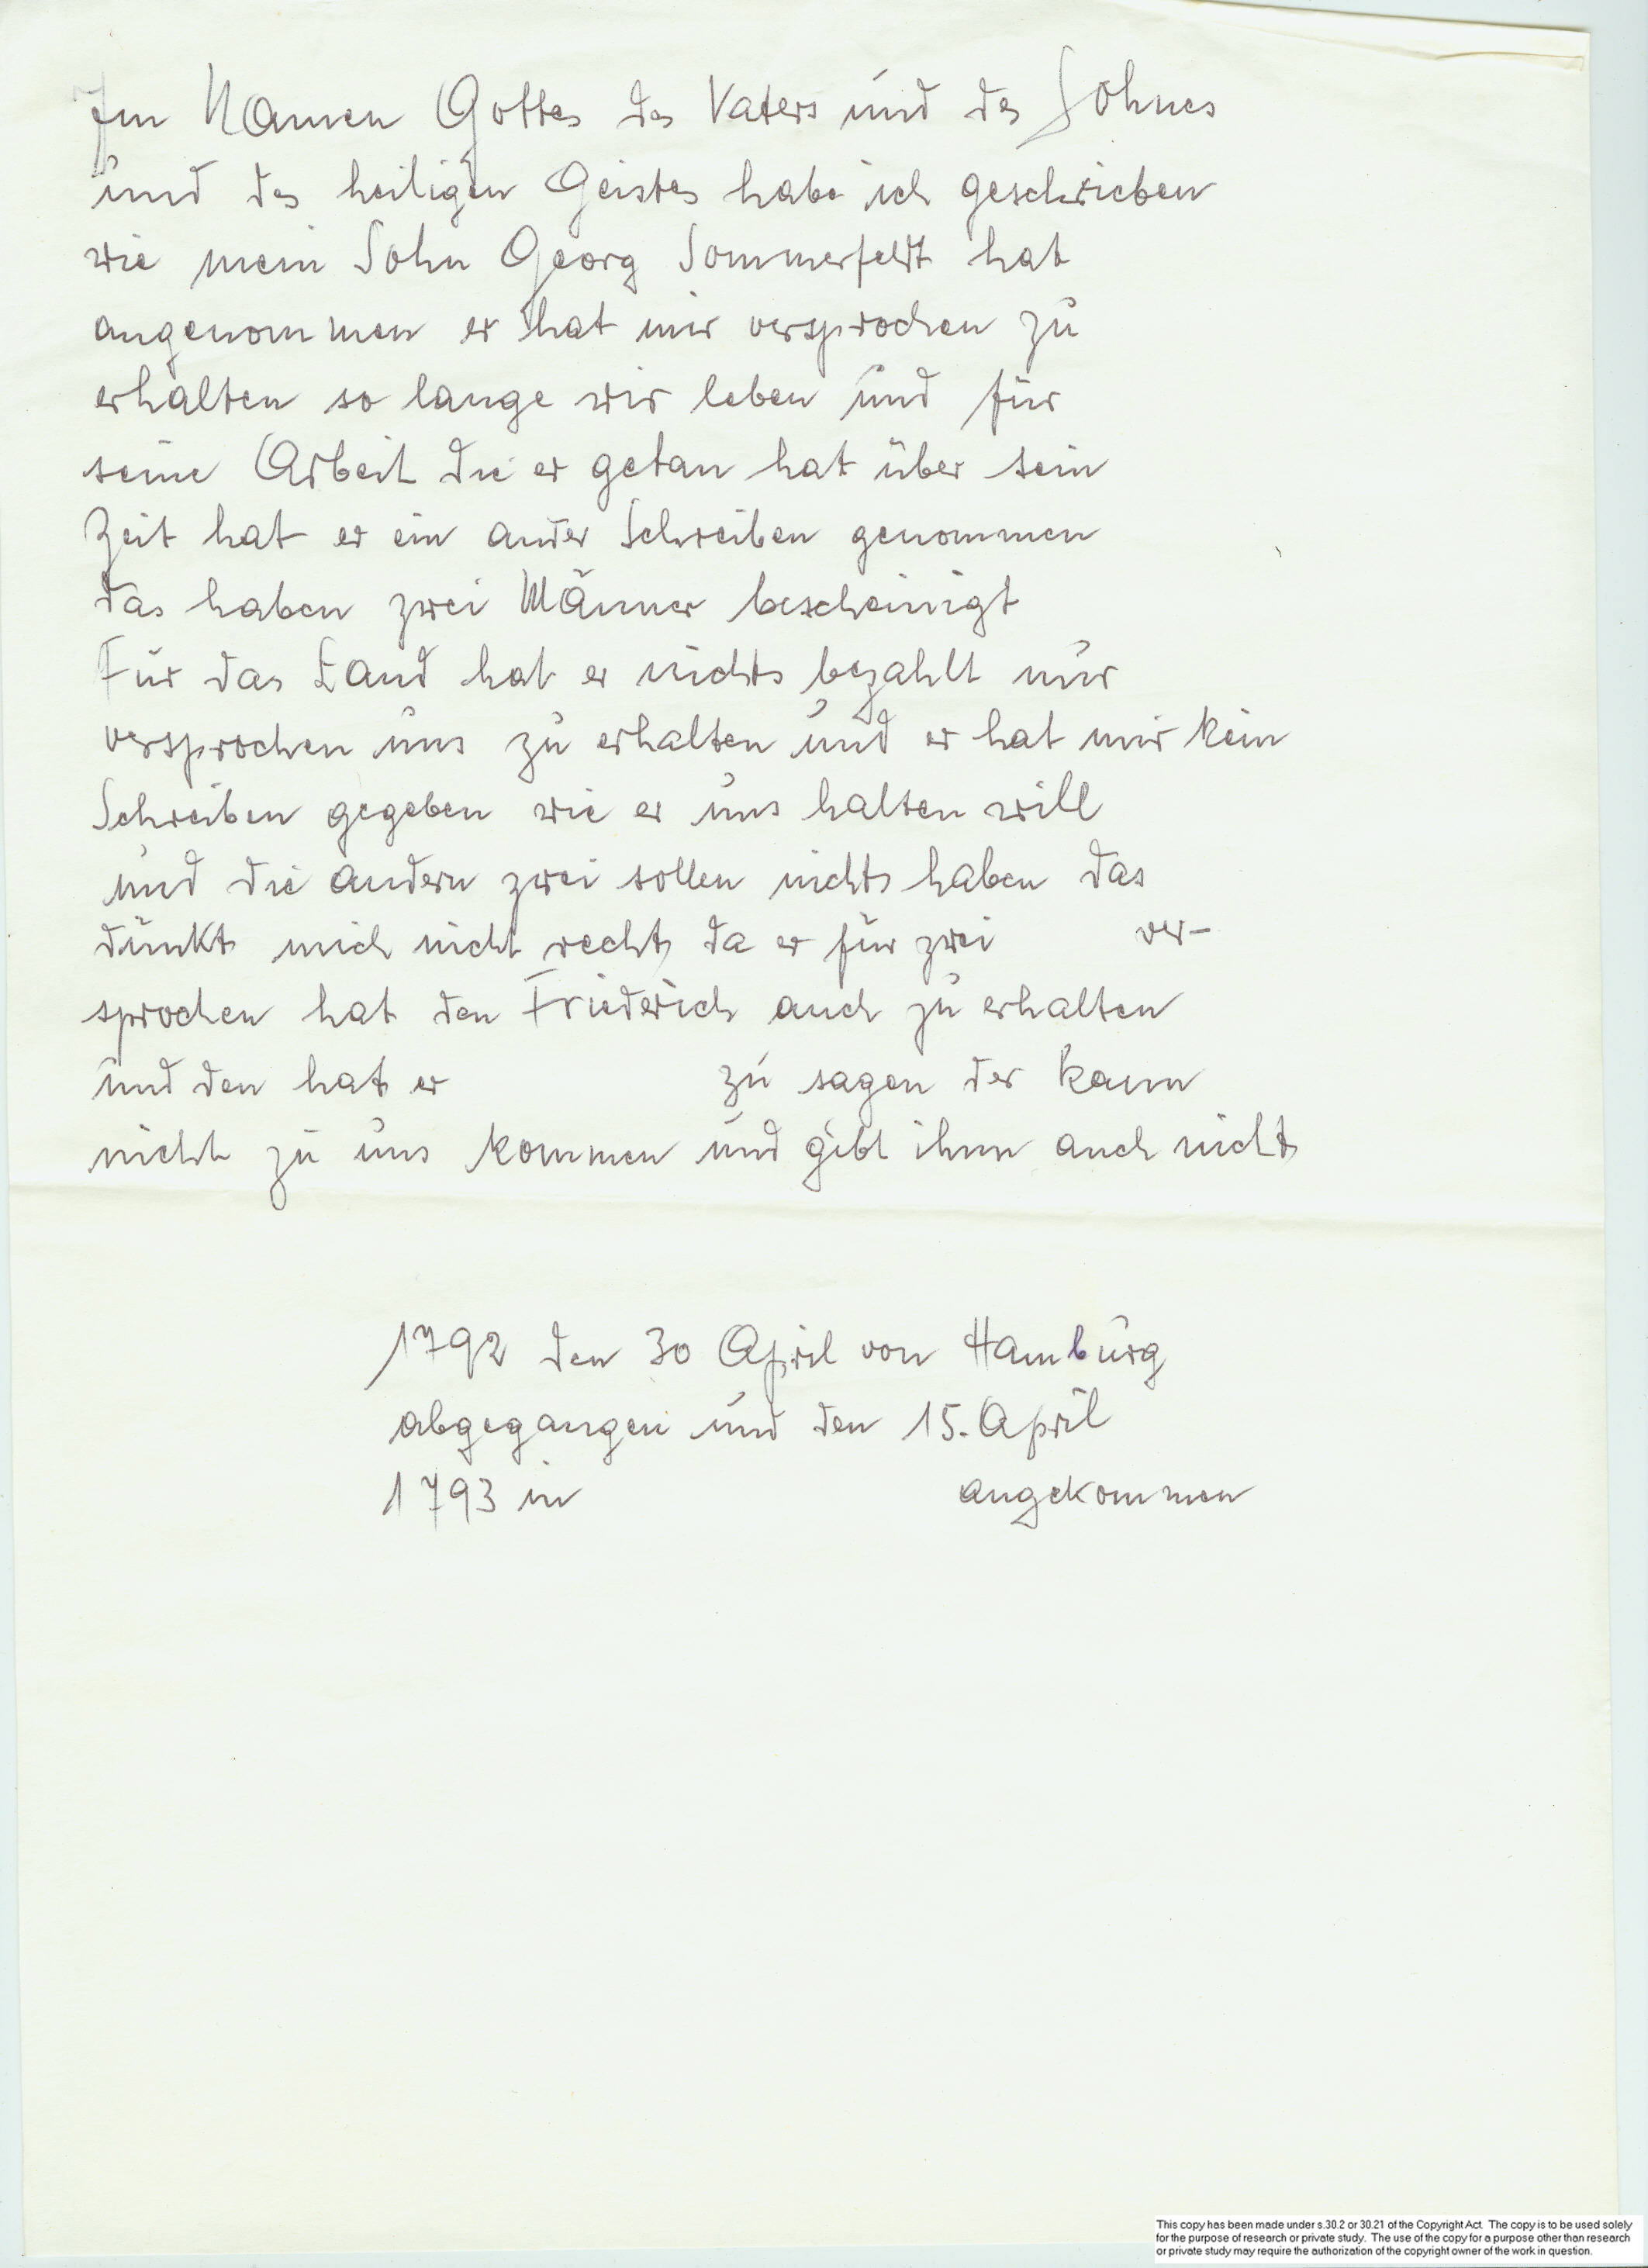 Im Namen Gottes des Vaters und des Sohnes
und des heiligen Geistes habe ich geschrieben
wie mein Sohn Georg Sommerfeldt hat
angenommen er hat mir versprochen zu
erhalten so lange wir leben und für
seine Arbeit die er getan hat über sein
Zeit hat er ein ander Schreiben genommen
das haben zwei Männer bescheinigt
Für das Land hat er nichts bezahlt nur
versprochen uns zu erhalten und er hat mir kein
Schreiben gegeben wie er uns halten will
und die andern zwei sollen nichts haben das
dünkt mich nicht recht da er für zwei ver-
sprochen hat den Friederich auch zu erhalten
und den hat er zu sagen der kann
nicht zu uns kommen und gibt ihm auch nicht
1792 den 30 April von Hamburg
abgegangen und den 15. April
1793 in angekommen
This copy has been made under s.30.2 or 30.21 of the Copyright Act. The copy is to be used solely
for the purpose of research or private study. The use of the copy for a purpose other than research
or private study may require the authorization of the copyright owner of the work in question.